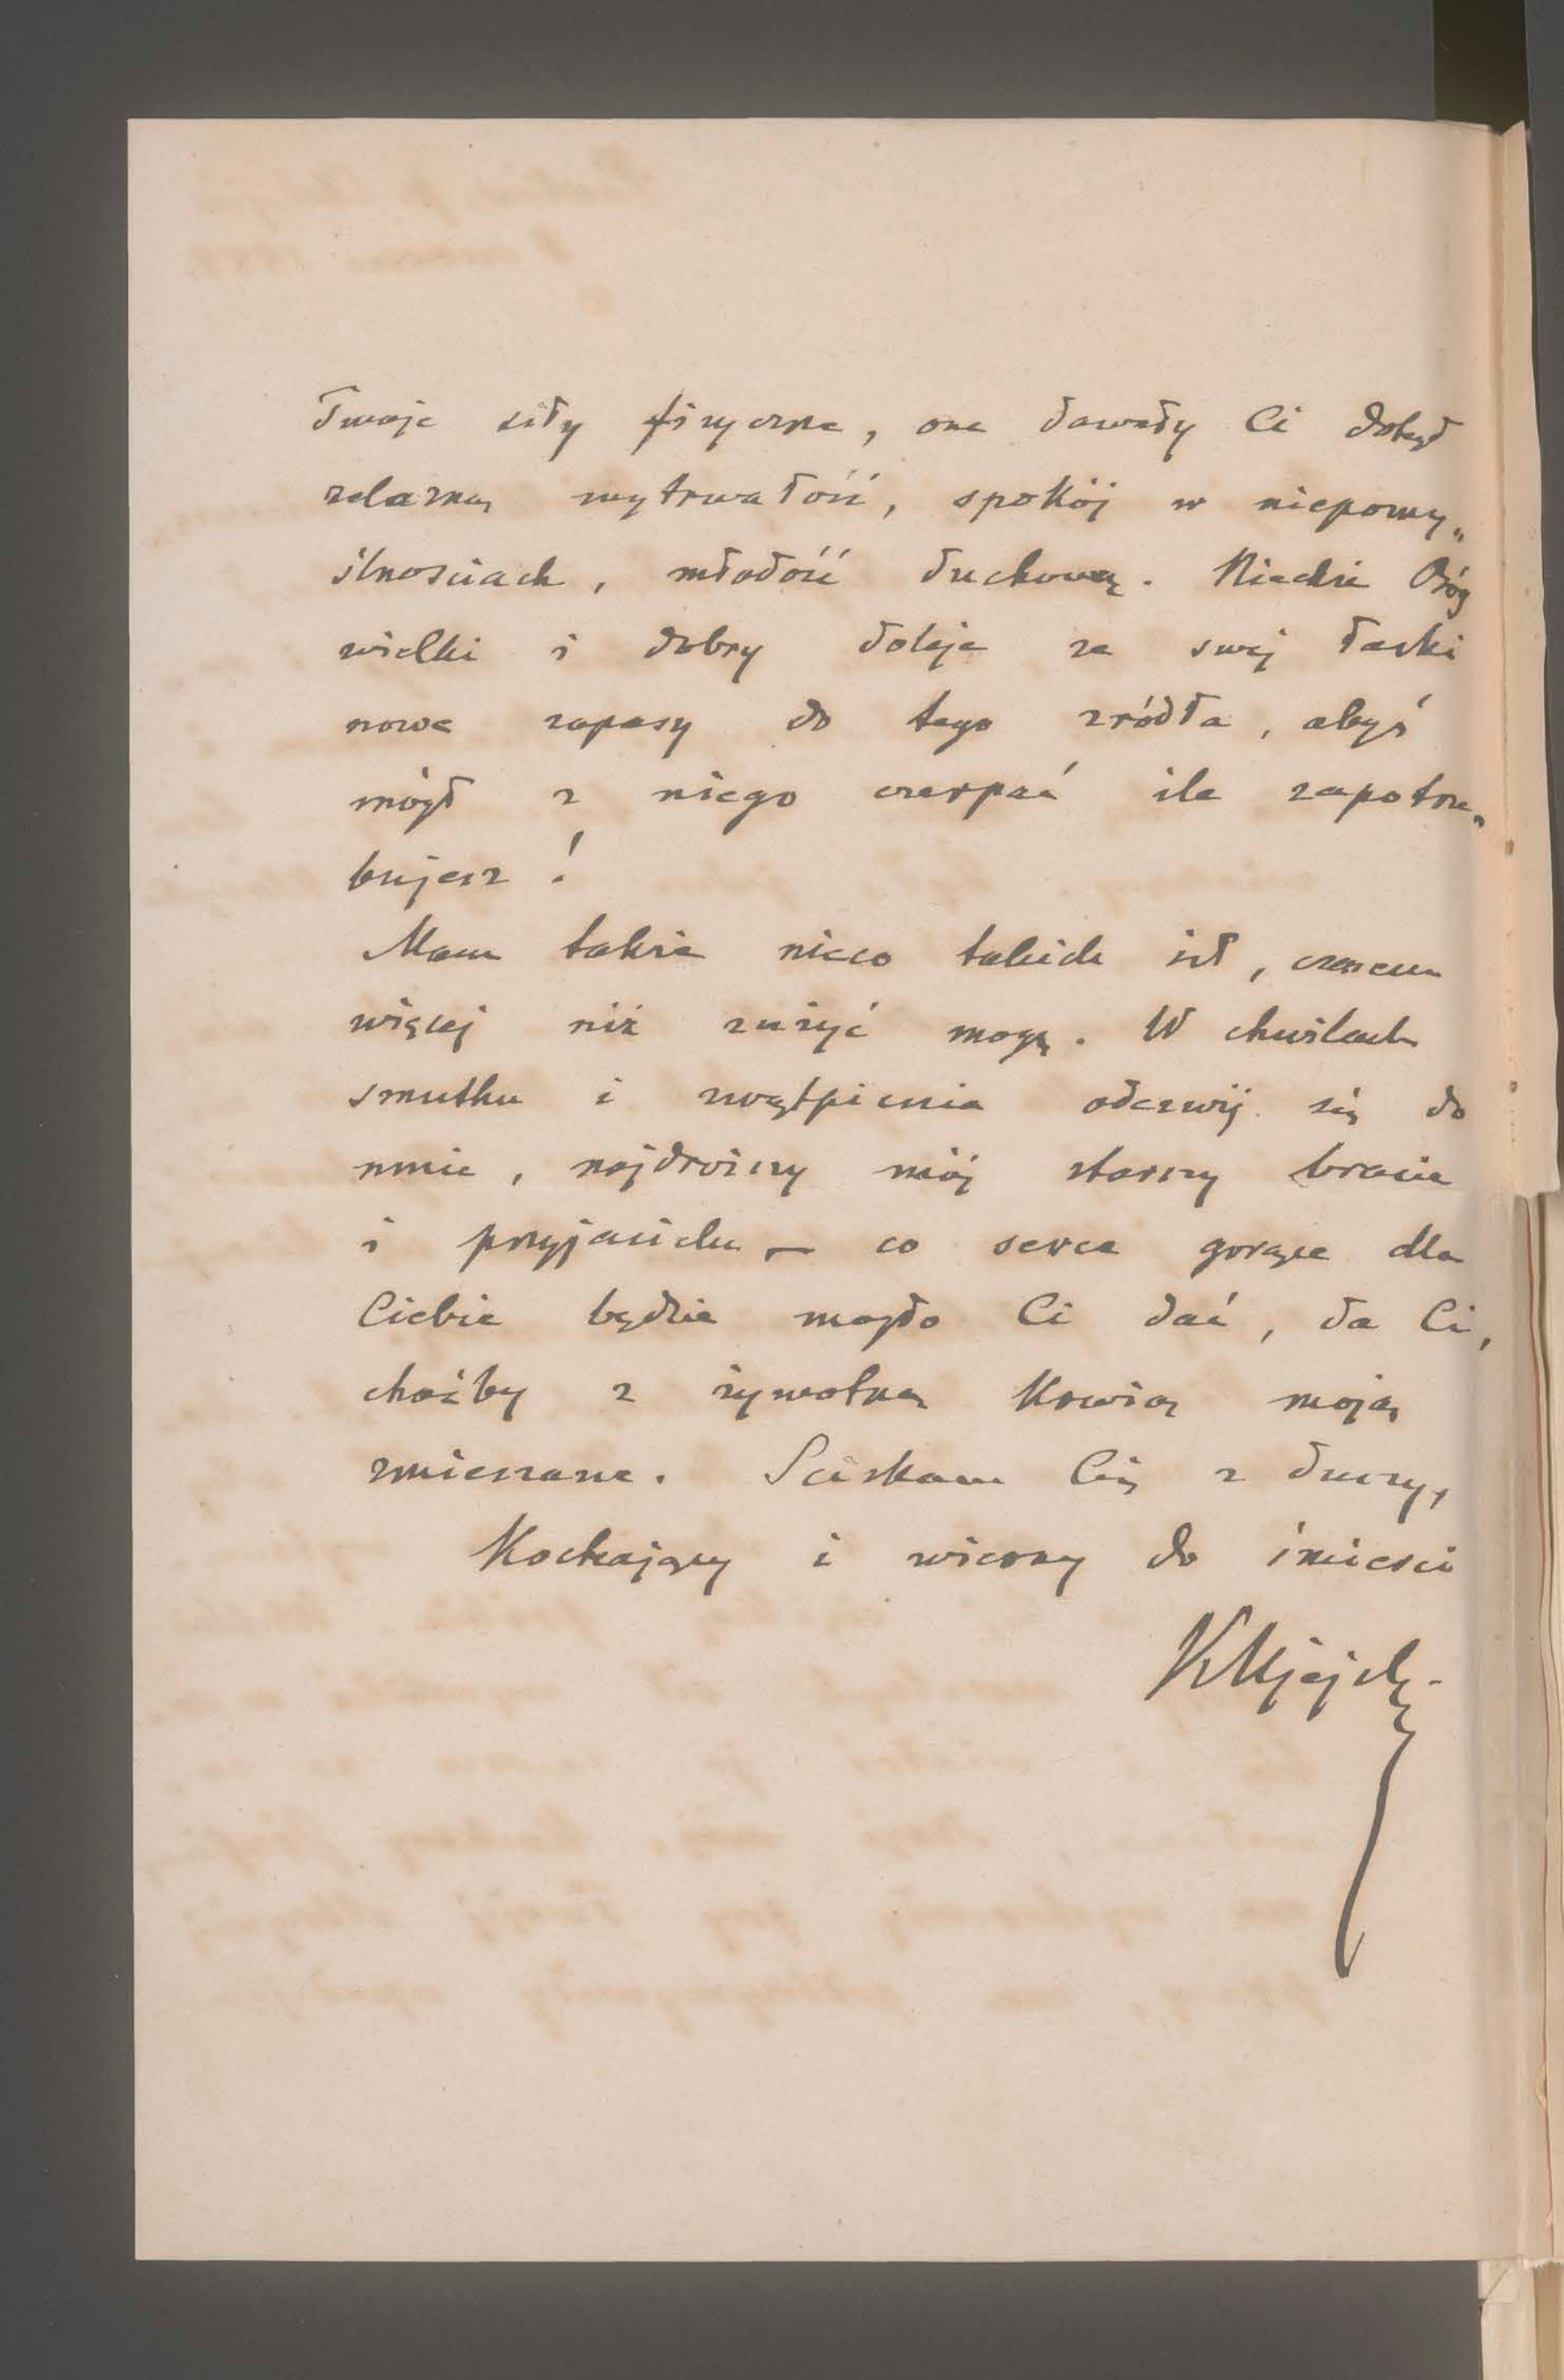 Twoje siły fizyczne, one dawały Ci dotąd
żelazną wytrwałość, spokój w niepomy„
ślnosciach, młodość duchową. Niechże Bóg
wielki i dobry doleje ze swej łaski
nowe zapasy do tego zródła, abyś
mógł z niego czerpać ile zapotrze„
bujesz!
Mam także nieco takich sił, czasem
więcej niż zużyć mogę. W chwilach
smutku i zwątpienia odezwij się do
mnie, najdroższy mój starszy bracie
i przyjacielu – co serce gorące dla
Ciebie będzie mogło Ci dać, da Ci,
choćby z żywotną krwią moją
zmieszane. Sciskam Cię z duszy,
Kochający i wierny do śmierci
KUjejski